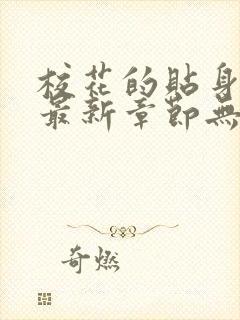 校花的貼身
最新章節無
奇燃